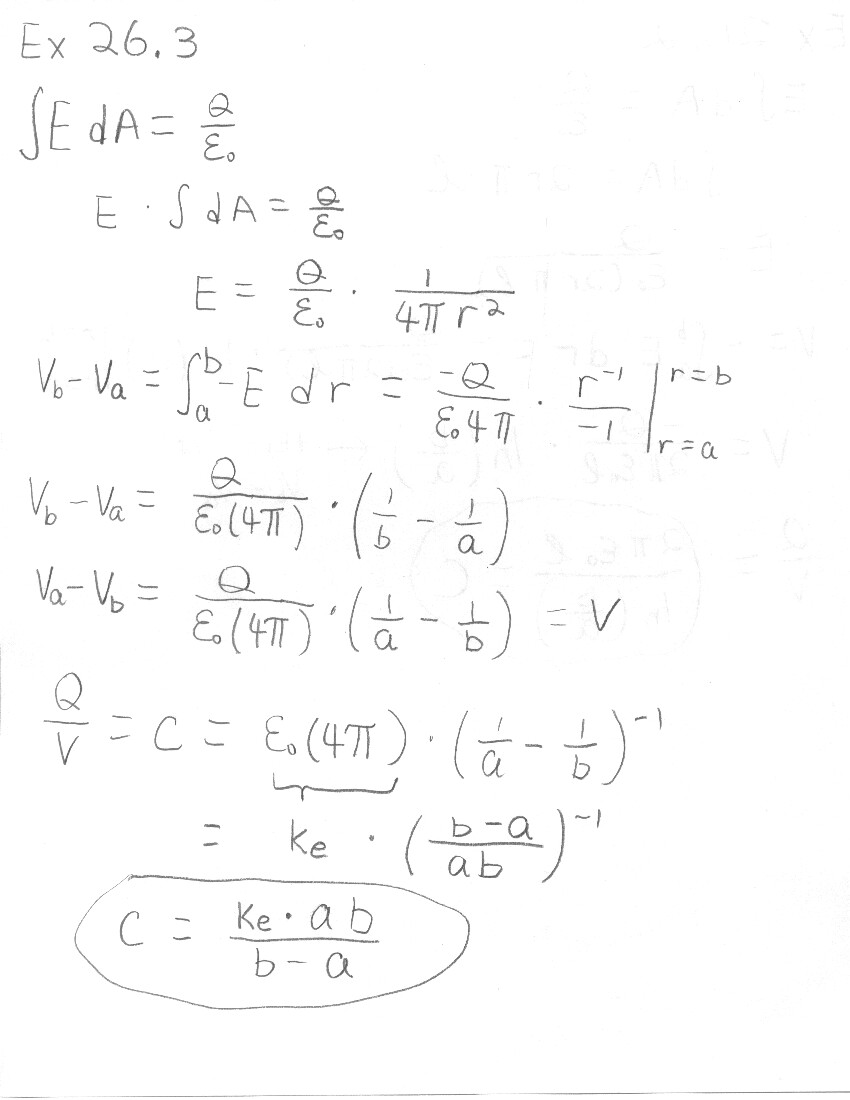 Ex 26.3
∫E dA = Q/ε₀
E · ∫ dA = Q/ε₀
E = Q/ε₀ · 1/(4π r²)
V_b - V_a = ∫_a^b -E dr = -Q/(ε₀4π) · r⁻¹/-1 |_{r=a}^{r=b}
V_b - V_a = Q/(ε₀(4π)) · (1/b - 1/a)
V_a - V_b = Q/(ε₀(4π)) · (1/a - 1/b) = V
Q/V = C = ε₀(4π) · (1/a - 1/b)⁻¹
= k_e · ((b-a)/(ab))⁻¹
C = (k_e · ab)/(b - a)